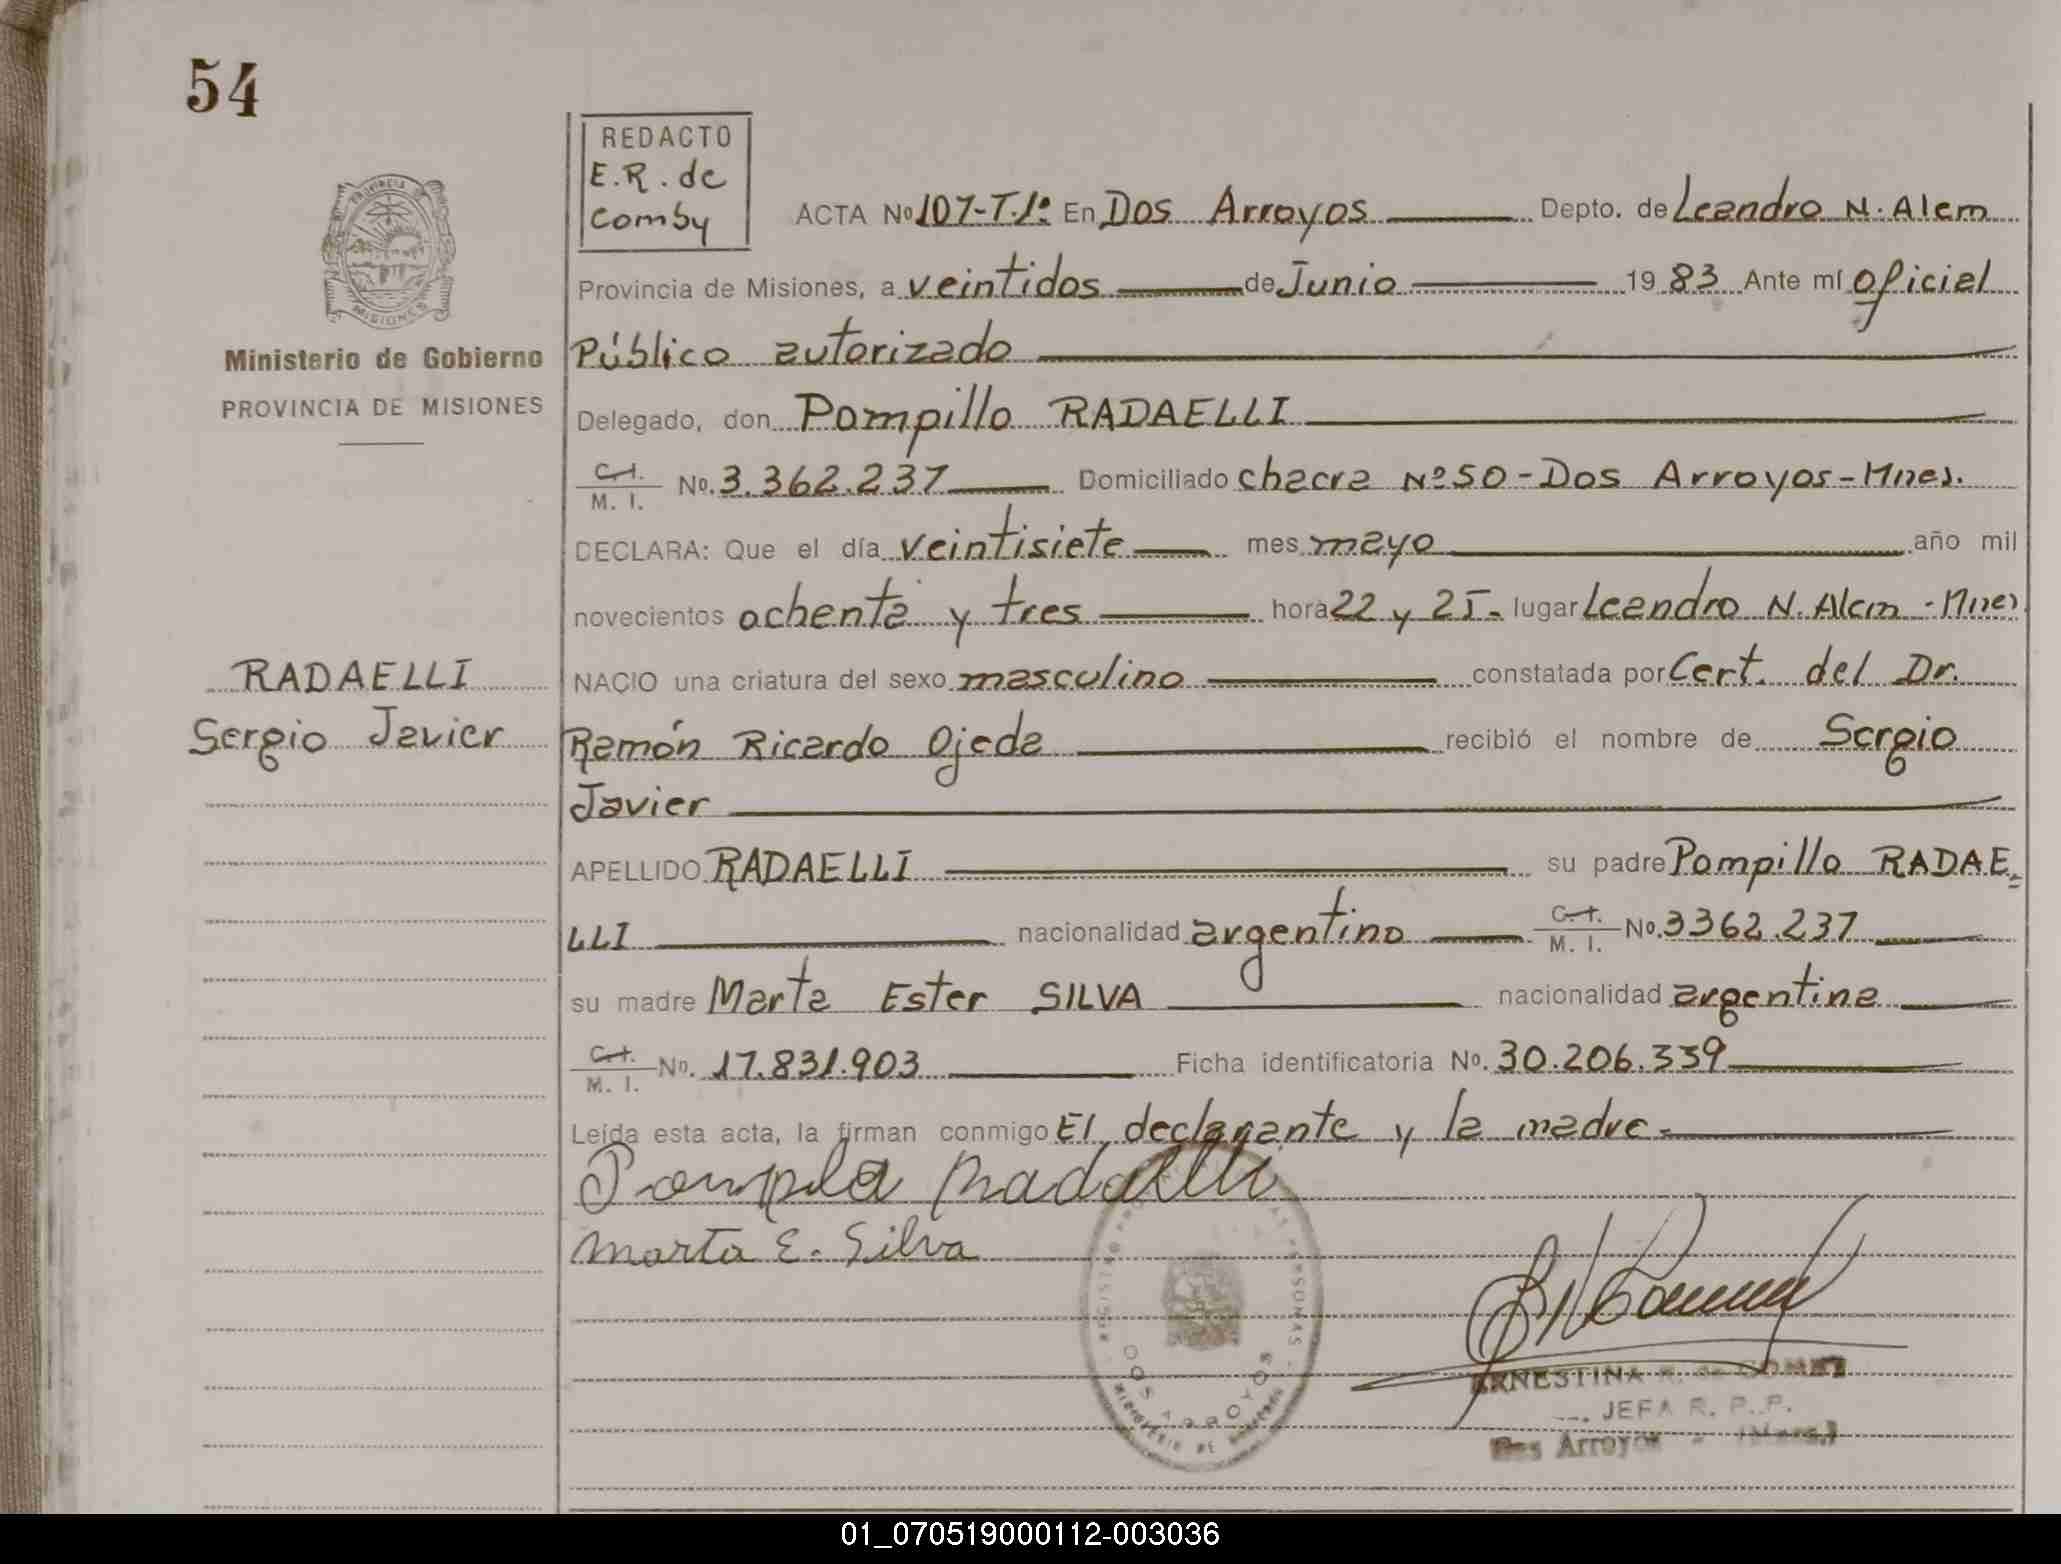 54
REDACTO
E.R. de
Comby
ACTA Nº 107-T.1º En Dos Arroyos Depto. de Leandro N. Alem
Provincia de Misiones, a veintidos de Junio 1983 Ante mí oficial
Público autorizado
Ministerio de Gobierno
PROVINCIA DE MISIONES
Delegado, don Pompillo RADAELLI
C.I.
M. I. No. 3.362.237 Domiciliado chacra Nº 50 - Dos Arroyos - Mnes.
DECLARA: Que el día veintisiete mes mayo año mil
novecientos ochenta y tres hora 22 y 25 - lugar Leandro N. Alem - Mnes
RADAELLI
Sergio Javier
NACIO una criatura del sexo masculino constatada por Cert. del Dr.
Ramón Ricardo Ojeda recibió el nombre de Sergio
Javier
APELLIDO RADAELLI su padre Pompillo RADAE=
LLI nacionalidad argentino C.I. M. I. No. 3362.237
su madre Marta Ester SILVA nacionalidad argentina
C.I.
M. I. No. 17.831.903 Ficha identificatoria No. 30.206.339
Leída esta acta, la firman conmigo El declarante y la madre.-
Radaelli
Marta E. Silva
DOS ARROYOS
ERNESTINA R. de GOMEZ
JEFA R. P. P.
Dos Arroyos - (Mnes.)
01_070519000112-003036